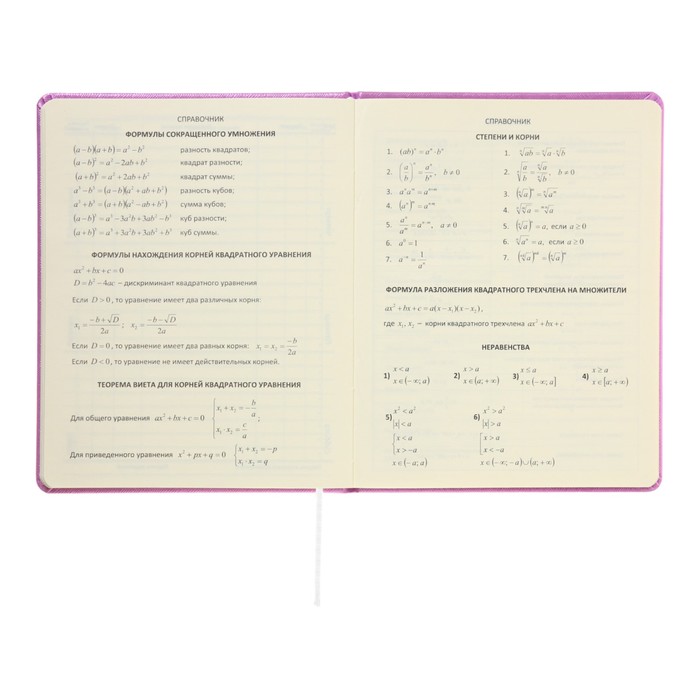 СПРАВОЧНИК
ФОРМУЛЫ СОКРАЩЕННОГО УМНОЖЕНИЯ
(a−b)(a+b)=a²−b² разность квадратов;
(a−b)²=a²−2ab+b² квадрат разности;
(a+b)²=a²+2ab+b² квадрат суммы;
a³−b³=(a−b)(a²+ab+b²) разность кубов;
a³+b³=(a+b)(a²−ab+b²) сумма кубов;
(a−b)³=a³−3a²b+3ab²−b³ куб разности;
(a+b)³=a³+3a²b+3ab²+b³ куб суммы.
ФОРМУЛЫ НАХОЖДЕНИЯ КОРНЕЙ КВАДРАТНОГО УРАВНЕНИЯ
ax²+bx+c=0
D=b²−4ac − дискриминант квадратного уравнения
Если D>0, то уравнение имеет два различных корня:
x₁=(−b+√D)/2a; x₂=(−b−√D)/2a
Если D=0, то уравнение имеет два равных корня: x₁=x₂=−b/2a
Если D<0, то уравнение не имеет действительных корней.
ТЕОРЕМА ВИЕТА ДЛЯ КОРНЕЙ КВАДРАТНОГО УРАВНЕНИЯ
Для общего уравнения ax²+bx+c=0 {x₁+x₂=−b/a; x₁·x₂=c/a
Для приведенного уравнения x²+px+q=0 {x₁+x₂=−p x₁·x₂=q
СПРАВОЧНИК
СТЕПЕНИ И КОРНИ
1. (ab)ⁿ=aⁿ·bⁿ
2. (a/b)ⁿ=aⁿ/bⁿ, b≠0
3. aⁿaᵐ=aⁿ⁺ᵐ
4. (aⁿ)ᵐ=aⁿᵐ
5. aⁿ/aᵐ=aⁿ⁻ᵐ, a≠0
6. a⁰=1
7. a⁻ⁿ=1/aⁿ
1. ⁿ√ab=ⁿ√a·ⁿ√b
2. ⁿ√(a/b)=ⁿ√a/ⁿ√b, b≠0
3. (ⁿ√a)ᵐ=ⁿ√aᵐ
4. ᵐ√ⁿ√a=ᵐⁿ√a
5. (ⁿ√a)ⁿ=a, если a≥0
6. ⁿ√aⁿ=a, если a≥0
ФОРМУЛА РАЗЛОЖЕНИЯ КВАДРАТНОГО ТРЕХЧЛЕНА НА МНОЖИТЕЛИ
ax²+bx+c=a(x−x₁)(x−x₂),
где x₁, x₂ − корни квадратного трехчлена ax²+bx+c
НЕРАВЕНСТВА
1) x<a x∈(−∞;a)
2) x>a x∈(a;+∞)
3) x≤a x∈(−∞;a]
4) x≥a x∈[a;+∞)
5) x²<a²
|x|<a
{x<a x>−a
x∈(−a;a)
6) x²>a²
|x|>a
[x>a x<−a
x∈(−∞;−a)∪(a;+∞)